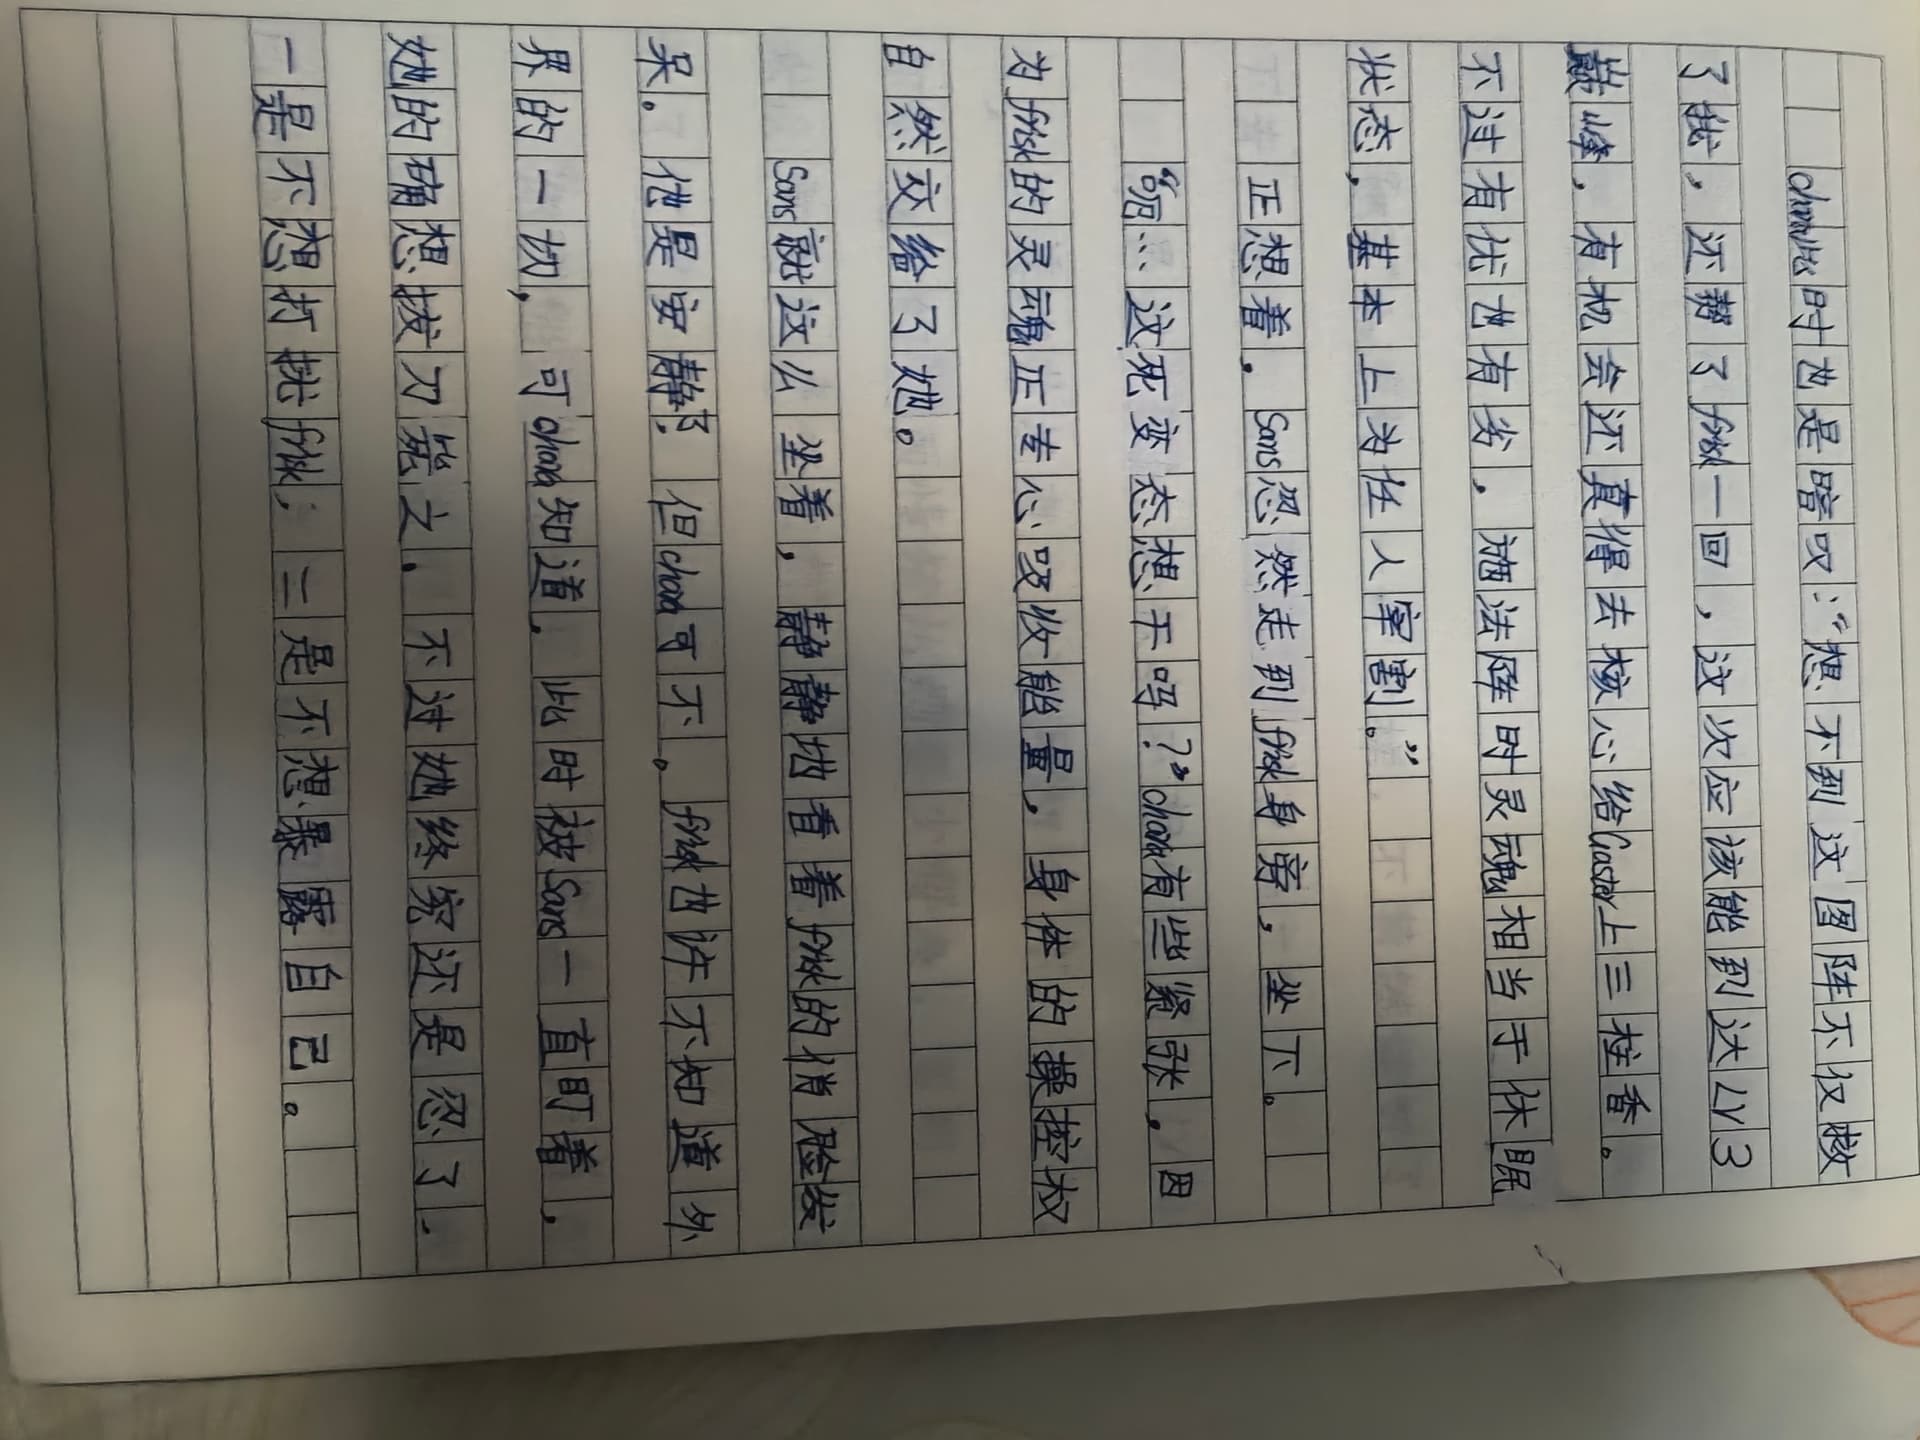 chara此时也是暗叹：“想不到这图阵不仅救
了我，还帮了frisk一回，这次应该能到达LV3
巅峰，有机会还真得去核心给Gaster上三柱香。
不过有优也有劣，施法阵时灵魂相当于休眠
状态，基本上为任人宰割。”
正想着。Sans忽然走到frisk身旁，坐下。
“呃…这死变态想干吗？”chara有些紧张，因
为frisk的灵魂正专心吸收能量，身体的操控权
自然交给了她。
Sans就这么坐着，静静地看着frisk的俏脸发
呆。他是安静了，但chara可不。frisk也许不知道外
界的一切，可chara知道，此时被Sans一直盯着，
她的确想拔刀宪之，不过她终究还是忍了，
一是不想打扰frisk；二是不想暴露自己。